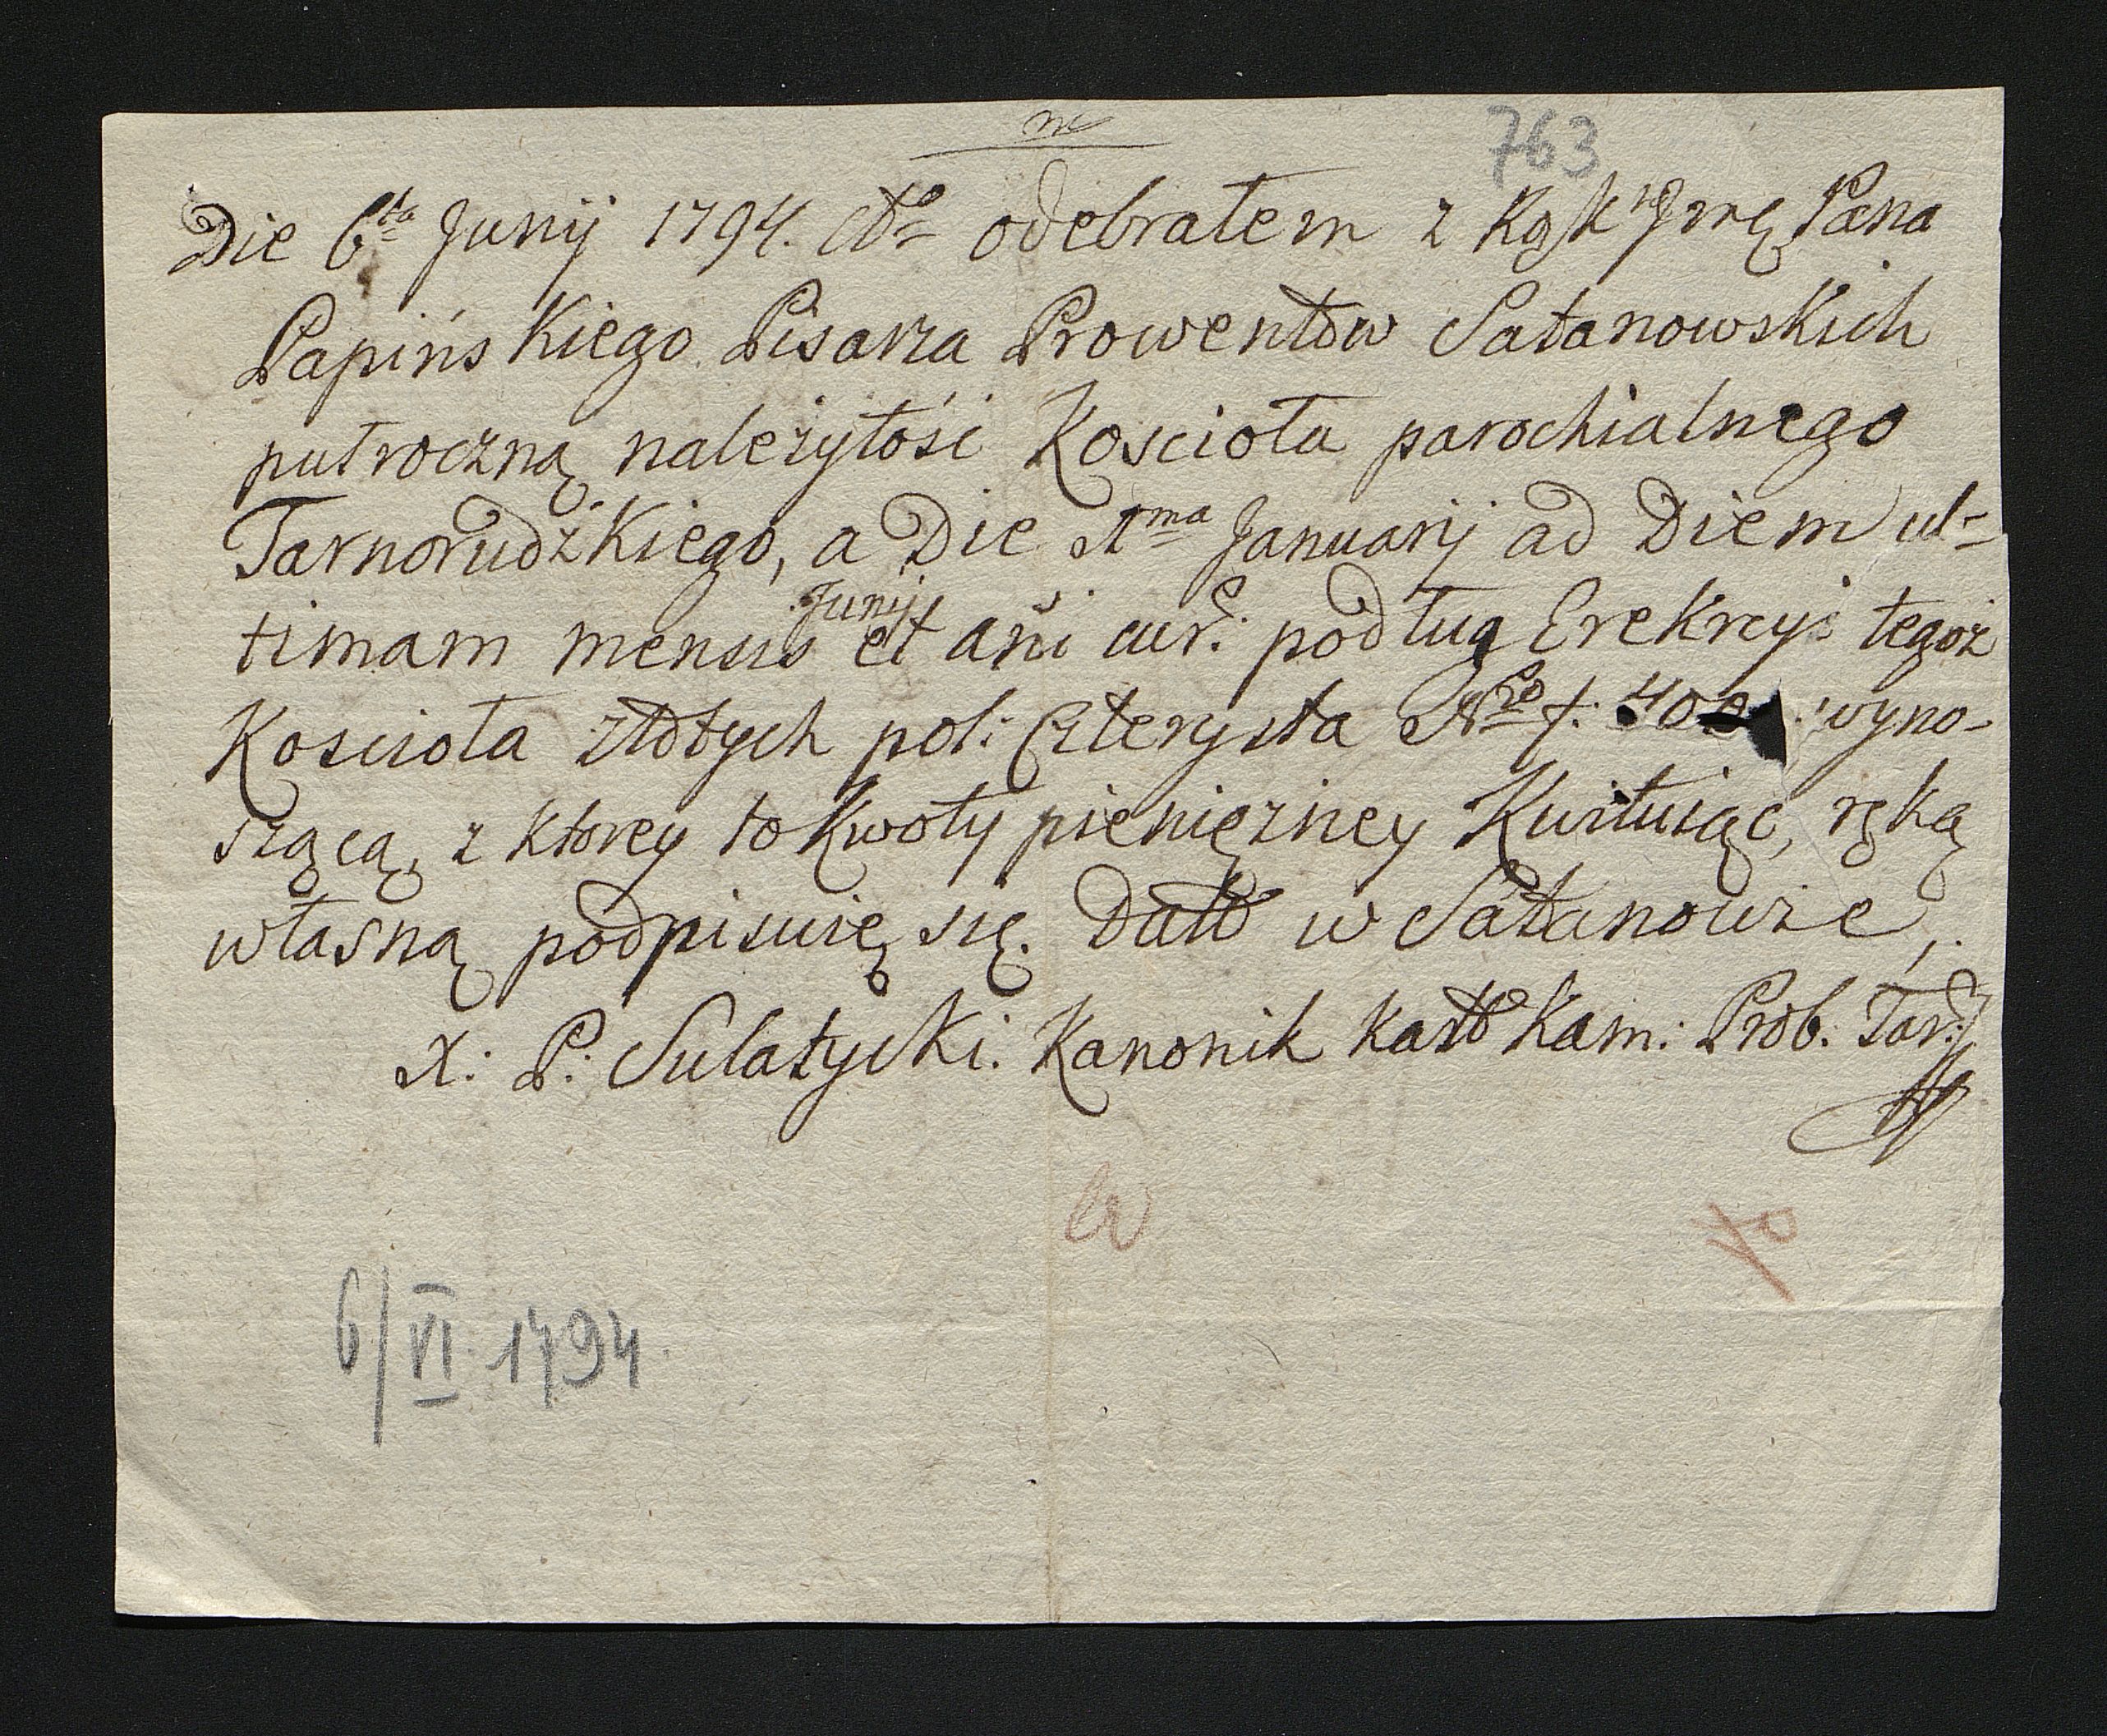 763
Die 6ta Junij 1794. Ao odebrałem z Kgsk Jmę Pana
Papińskiego Pisarza Prowentow Satanowskich
pułroczną należytośi Koscioła parochialnego
Tarnorudzkiego, a Die 1ma Januarij ad Diem ul=
timam mensis Junij et añi cur: podług Erekcyi tegoż
Koscioła złotych pol: czterysta No f: 400 wyno-
szącą, z ktorey to kwoty pienięzney Kwituiąc, ręką
własną podpisuię się. Datt w Satanowie,
X: P: Sulatycki. Kanonik Katt Kam: Prob: Tar:
6/VI 1794